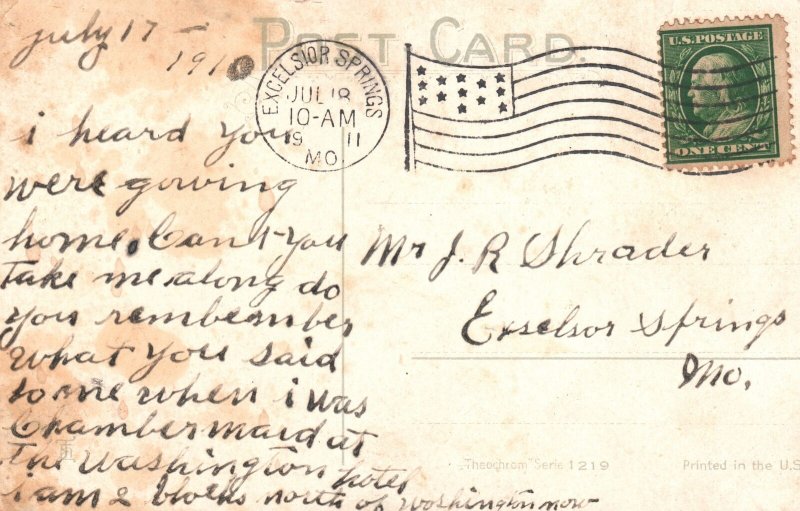 POST CARD.
july 17 -
1910
EXCELSIOR SPRINGS
JUL 18
10-AM
19 11
MO.
U.S. POSTAGE
ONE CENT
i heard you
were gowing
home. Cant you
take me along do
you rembember
what you said
to me when i was
Chambermaid at
The Washington hotel
i am 2 blocks north of Washington now
Mr J. R Shrader
Exselsor Springs
Mo.
"Theochrom" Serie 1219
Printed in the U.S